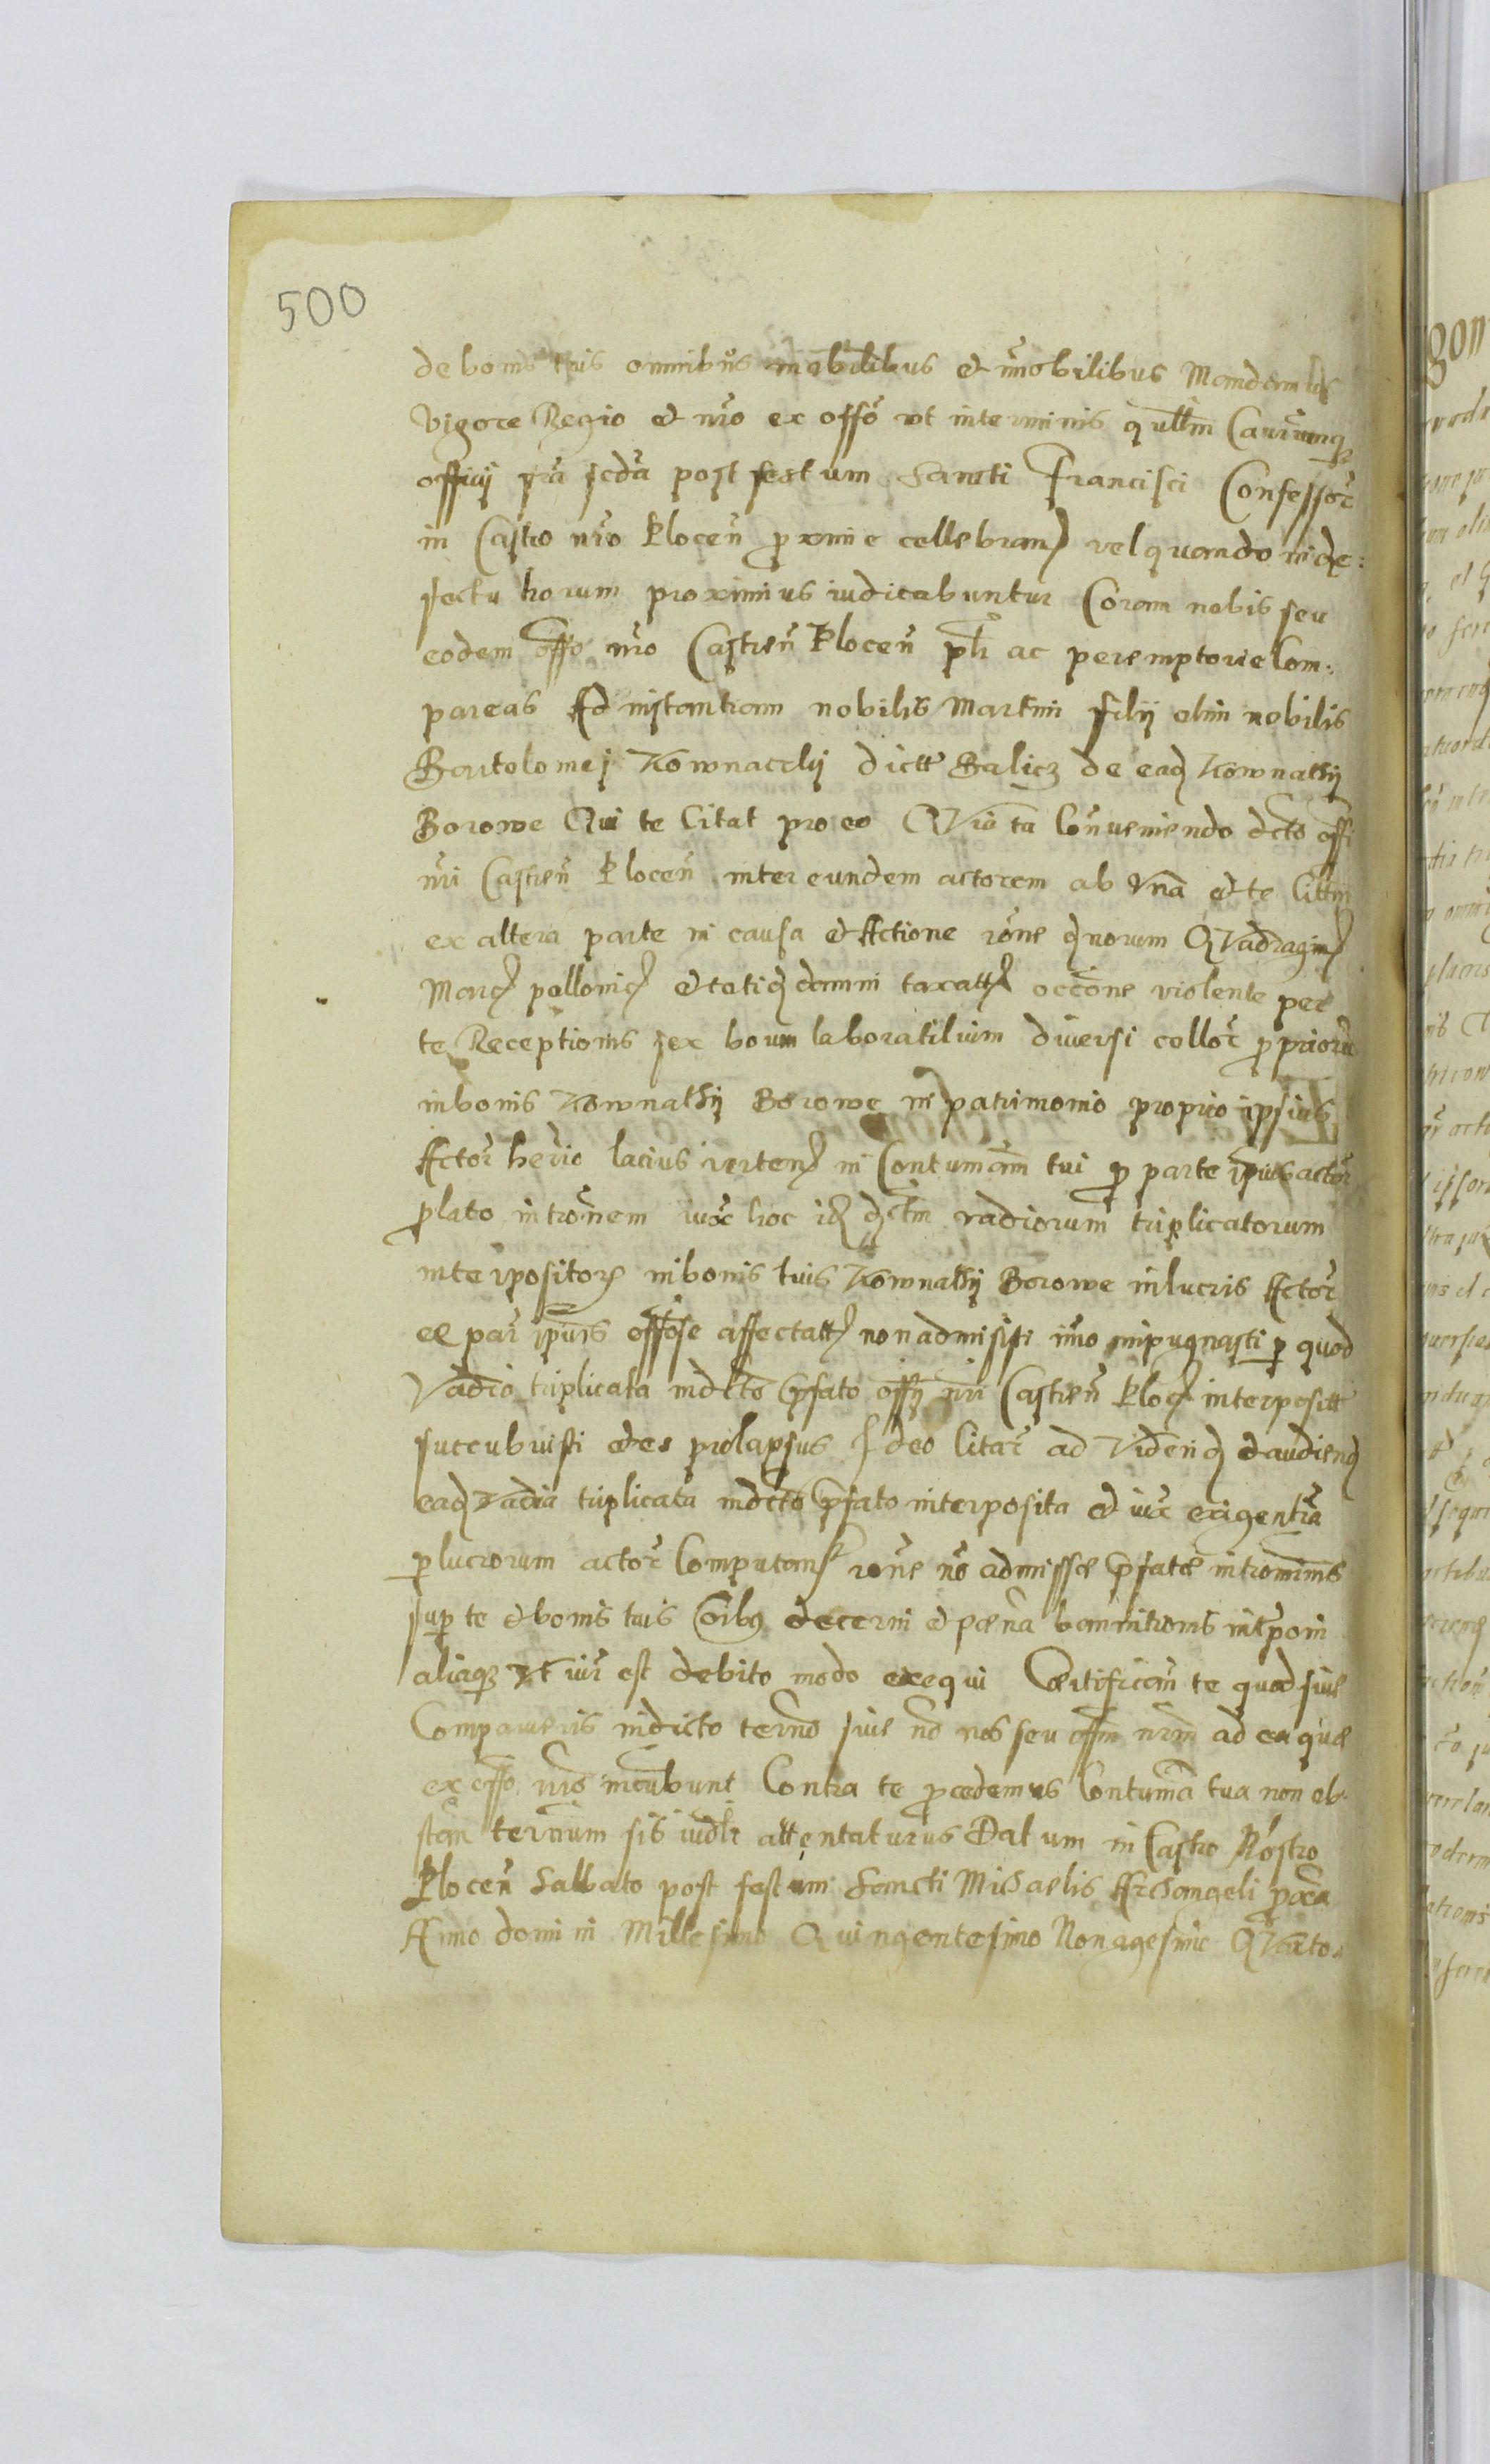 500
de bonis tuis omnibus mobilibus et imobilibus Mandamus
Vigore Regio et nro ex offo ut in terminis
officij fria scda post festum Sancti Francisci Confessor
in Castro nro Plocen proxime cellebran vel quando in de:
fectu horum proximius iudicabuntur Coram nobis seu
eodem offo nro Castren Plocen plr ac peremptorie Com:
pareas Ad instantiam nobilis Martini filij olim nobilis
Bartolomej Kownaczky dictt Balicz de eadem Kownathy
Borowe Qui te Citat pro eo Quia ta Conveniendo dcto offi
nri Castren Plocen inter eundem actorem ab Una et te Cittm
ex altera parte in causa et Actione rone Qnorum Quadragin
Marc pollonic et totiq damni taxatt occone violente per
te Receptionis sex boum laboratilium diversi collor propriorum
in bonis Kownathy Borowe in patrimonio proprio ipsius
Actor herio lacius verten in Contumam tui per parte ipsius actor
plato intronem iux hoc vadiorum triplicatorum
interpositor in bonis tuis Kownathy Borowe in lucris Actor
ee par ipius offose affectatt non admisisti imo impugnasti p quod
Vadio triplicata in dcto pfato offij nri Castren Ploc interpositt
succubuisti et es prolapsus Ideo Citar ad Viden et audien
eadem vadia triplicata in dcto pfato interposita et iux exigentia
p lucrorum actor Computan rone no admissae pfatae intromis
sup te et bonis tuis oibus decerni et paena bannitionis intponi
aliaqz Ut iur est debito modo exequi Certifican te quod sive
Comparueris in dicto terno sive no nos seu offm nrm ad ea quae
ex offo nro incumbunt Contra te procedemus Contuma tua non ob
stan terminum sis iudlr attentaturus Datum in Castro Nostro
Plocen Sabbato post festum Sancti Michaelis Archangeli proxa
Anno domini Millesimo Quingentesimo Nonagesimo Quarto